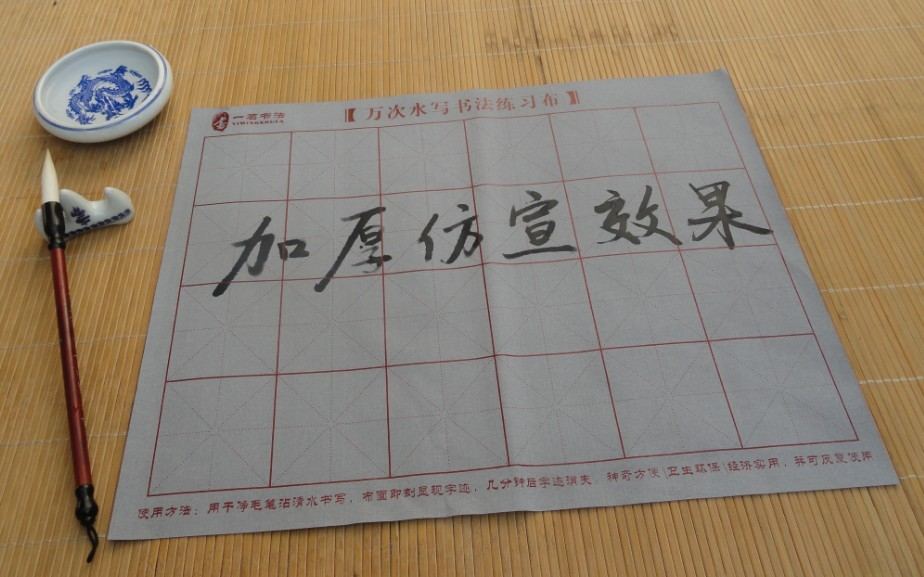 一茗书法
YIMINGSHUFA
【万次水写书法练习布】
加厚仿宣效果
使用方法：用干净毛笔沾清水书写，布面即刻呈现字迹，几分钟后字迹消失，神奇方便(卫生环保)经济实用，并可反复使用